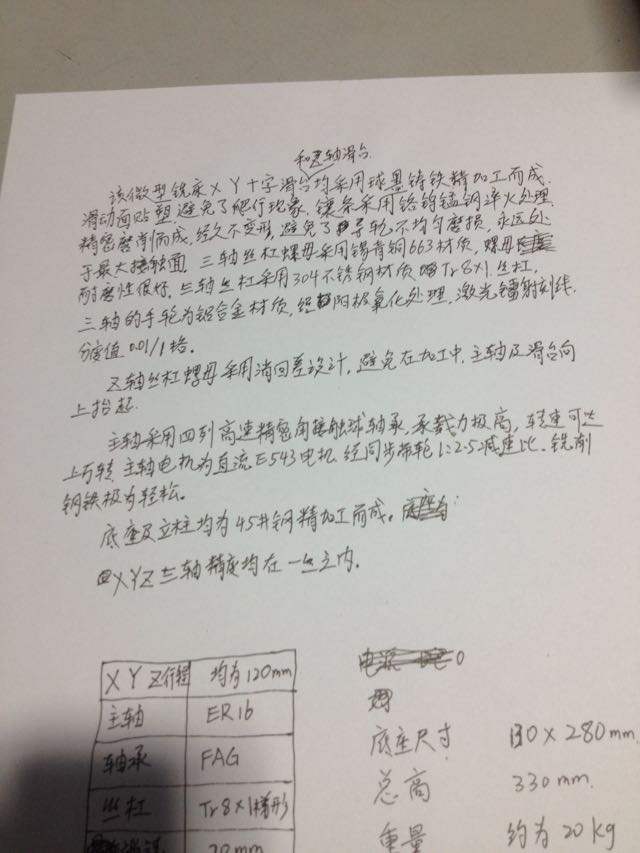 和Z轴滑台
该微型铣床XY十字滑台均采用球墨铸铁精加工而成.
滑动面贴塑.避免了爬行现象.镶条采用铬钨锰钢淬火处理.
精密磨削而成,经久不变形,避免了导轨不均匀磨损,永远处
于最大接触面.三轴丝杠螺母采用锡青铜663材质,螺母
耐磨性很好.三轴丝杠采用304不锈钢材质Tr8×1.丝杠.
三轴的手轮为铝合金材质,经阳极氧化处理,激光镭射刻线.
分度值0.01/1格.
Z轴丝杠螺母采用消回差设计,避免在加工中.主轴及滑台向
上抬起.
主轴采用四列高速精密角接触球轴承.承载力极高,转速可达
上万转.主轴电机为直流E543电机.经同步带轮1:2.52减速比.铣削
钢铁极为轻松.
底座及立柱均为45#钢精加工而成。
XYZ三轴精度均在一丝之内.
XYZ行程 均为120mm
主轴 ER16
轴承 FAG
丝杠 Tr8×1梯形
20mm
底座尺寸 130×280mm.
总高 330mm.
重量 约为20kg